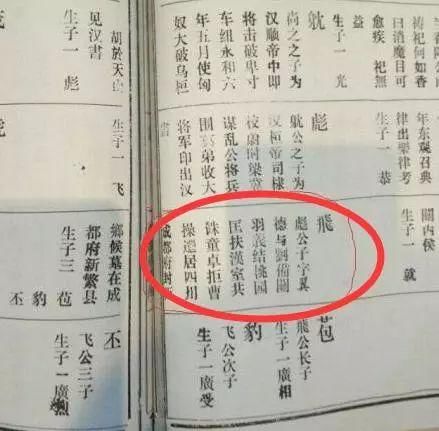 祷祀何如香
日消魔目可
愈疾 祀無
益
生子一 光
躭
尚之之子为
汉顺帝中即
将击破卑寸
车纽永和六
年五月使匈
奴大破乌桓
年东观召典
律出樂律考
生子一 恭
彪
躭公之子为
汉桓帝司棣
校肅何梁堂
谋乱公将兵
围冀弟收大
将军印出汉
書
關内侯
生子一 就
飛
彪公子字翼
德与劉備關
羽義结桃园
匡扶漢室共
誅童卓拒曹
操遷居四川
成都府
包
飛公長子
生子一廣相
豹
飞公次子
生子一廣受
胡於天山
见汉書
生子一 彪
生子一 飞
鄉候墓在成
都府新繁县
生子三 苞
豹
丕
丕
飞公三子
生子一廣